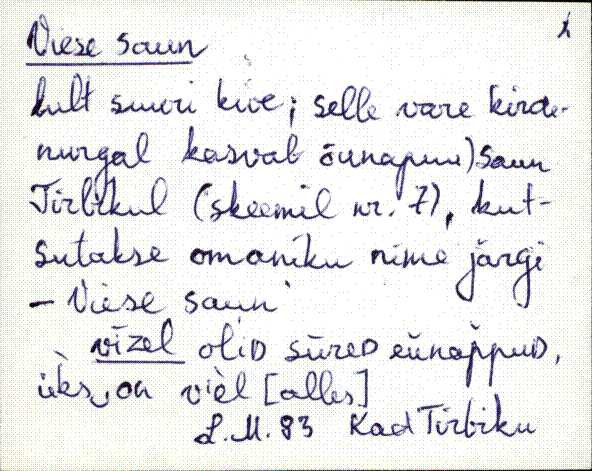 Viese saun
hult suuri kive; selle vare kirde-
nurgal kasvab õunapuu) saun
Tirbikul (skeemil nr. 7), kut-
sutakse omaniku nime järgi
– Viese saun
vīzel oliD sūreD eùnàppuD,
üks, on vièl [alles]
L.M. 83 Kad Tirbiku